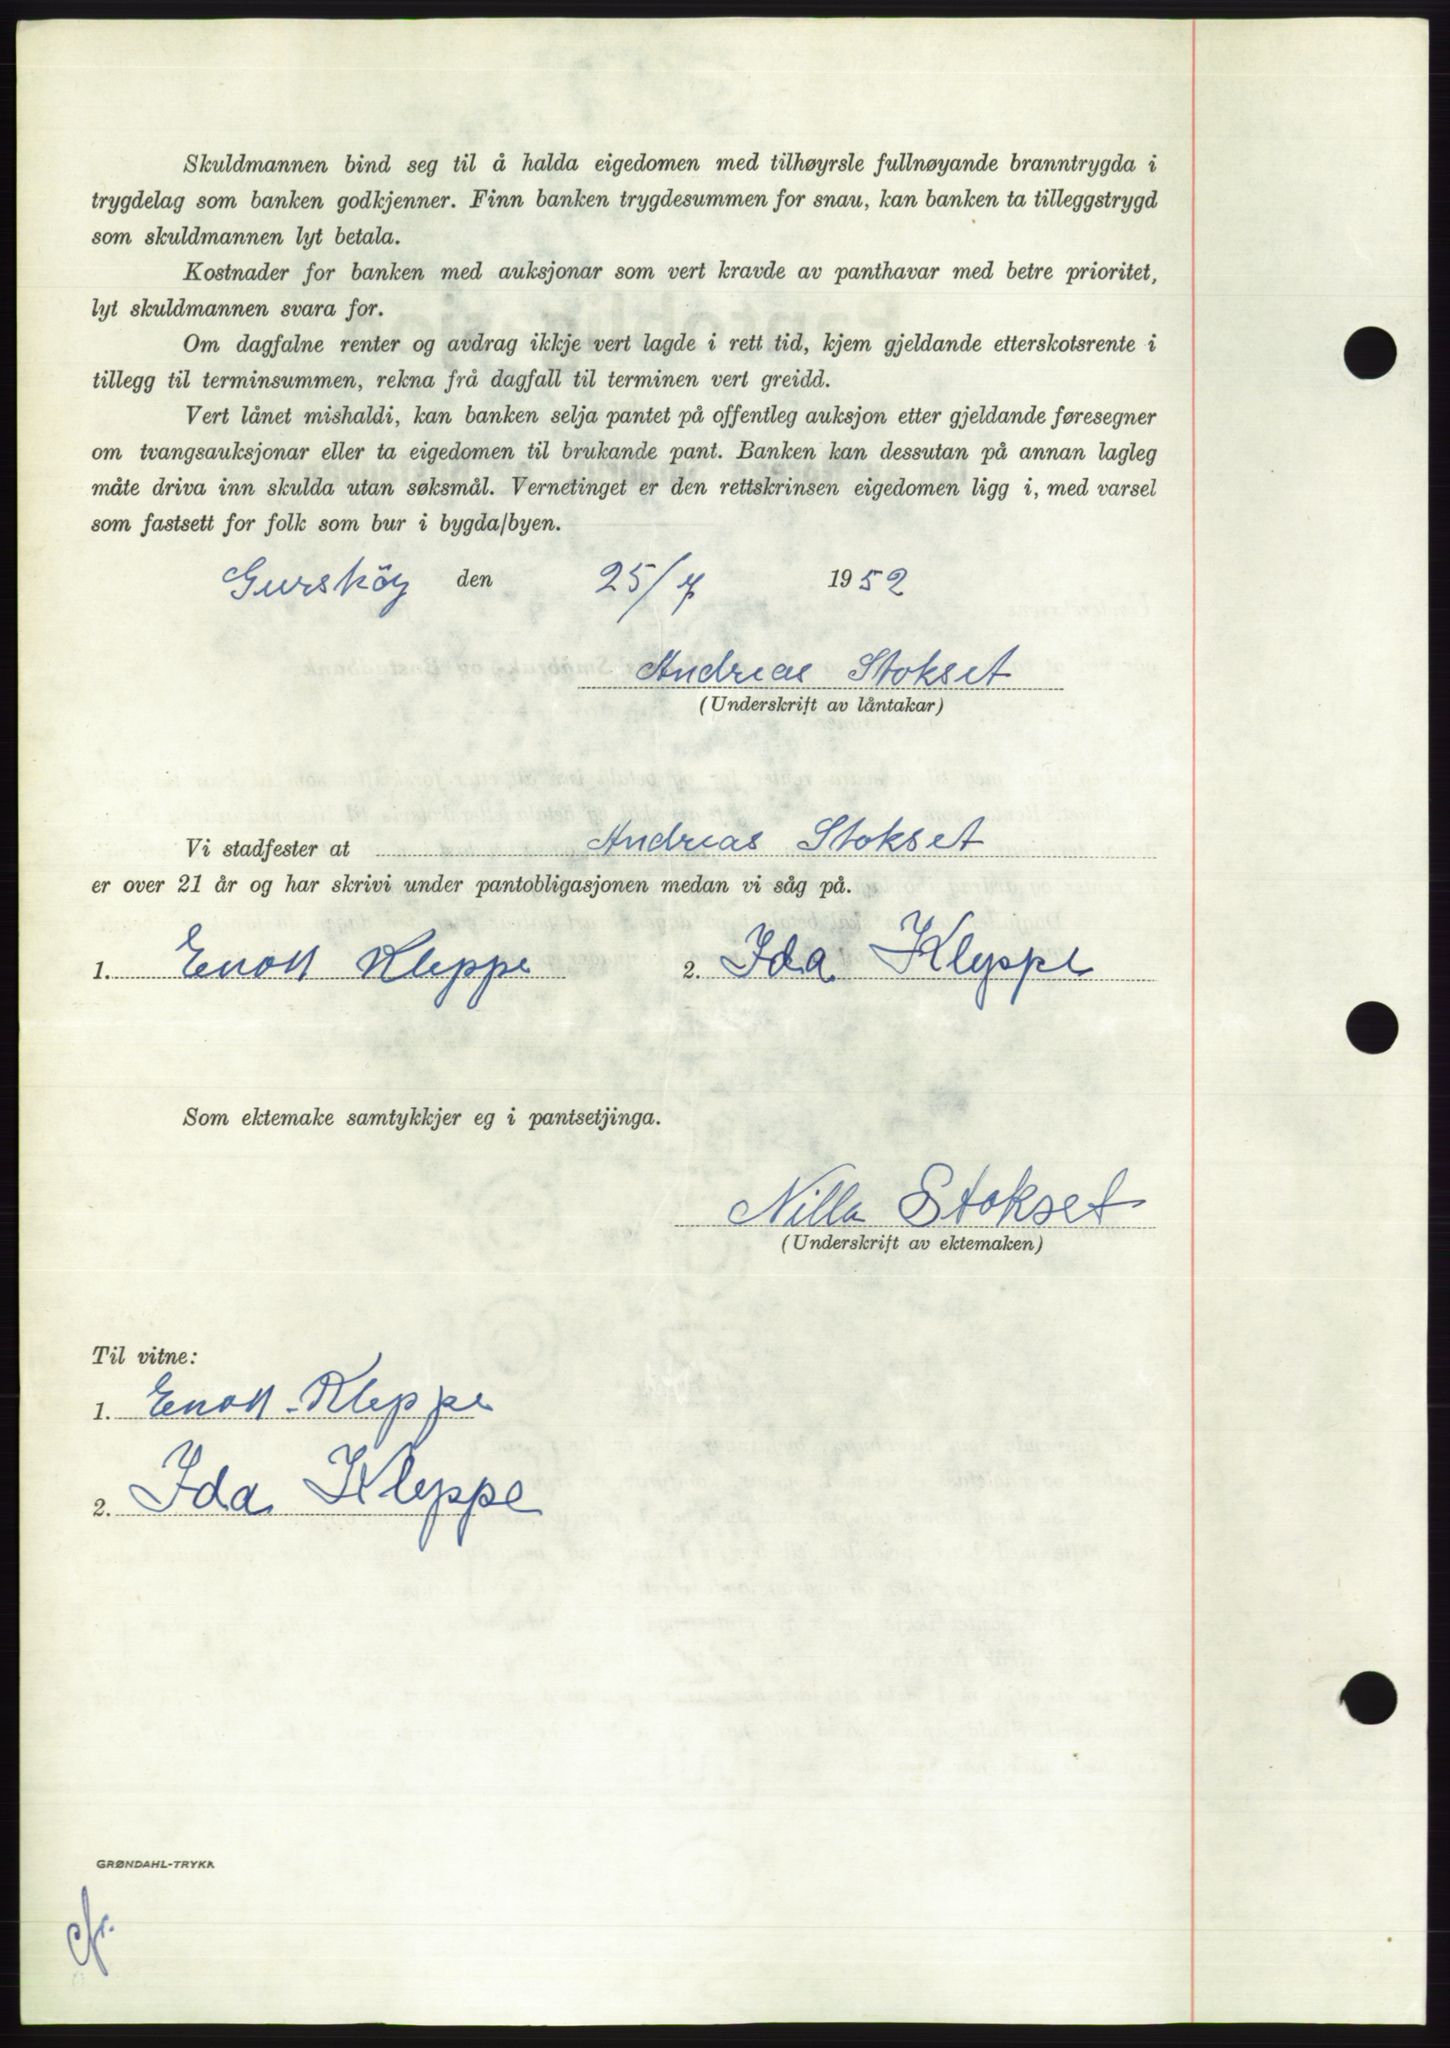 Skuldmannen bind seg til å halda eigedomen med tilhøyrsle fullnøyande branntrygda i
trygdelag som banken godkjenner. Finn banken trygdesummen for snau, kan banken ta tilleggstrygd
som skuldmannen lyt betala.
Kostnader for banken med auksjonar som vert kravde av panthavar med betre prioritet,
lyt skuldmannen svara for.
Om dagfalne renter og avdrag ikkje vert lagde i rett tid, kjem gjeldande etterskotsrente i
tillegg til terminsummen, rekna frå dagfall til terminen vert greidd.
Vert lånet mishaldi, kan banken selja pantet på offentleg auksjon etter gjeldande føresegner
om tvangsauksjonar eller ta eigedomen til brukande pant. Banken kan dessutan på annan lagleg
måte driva inn skulda utan søksmål. Vernetinget er den rettskrinsen eigedomen ligg i, med varsel
som fastsett for folk som bur i bygda/byen.
Gursköy den 25/7 1952
Andreas Stokset
(Underskrift av låntakar)
Vi stadfester at Andreas Stokset
er over 21 år og har skrivi under pantobligasjonen medan vi såg på.
1. Enok Kleppe 2. Ida Kleppe
Som ektemake samtykkjer eg i pantsetjinga.
Nilla Stokset
(Underskrift av ektemaken)
Til vitne:
1. Enok Kleppe
2. Ida Kleppe
GRØNDAHL-TRYKK